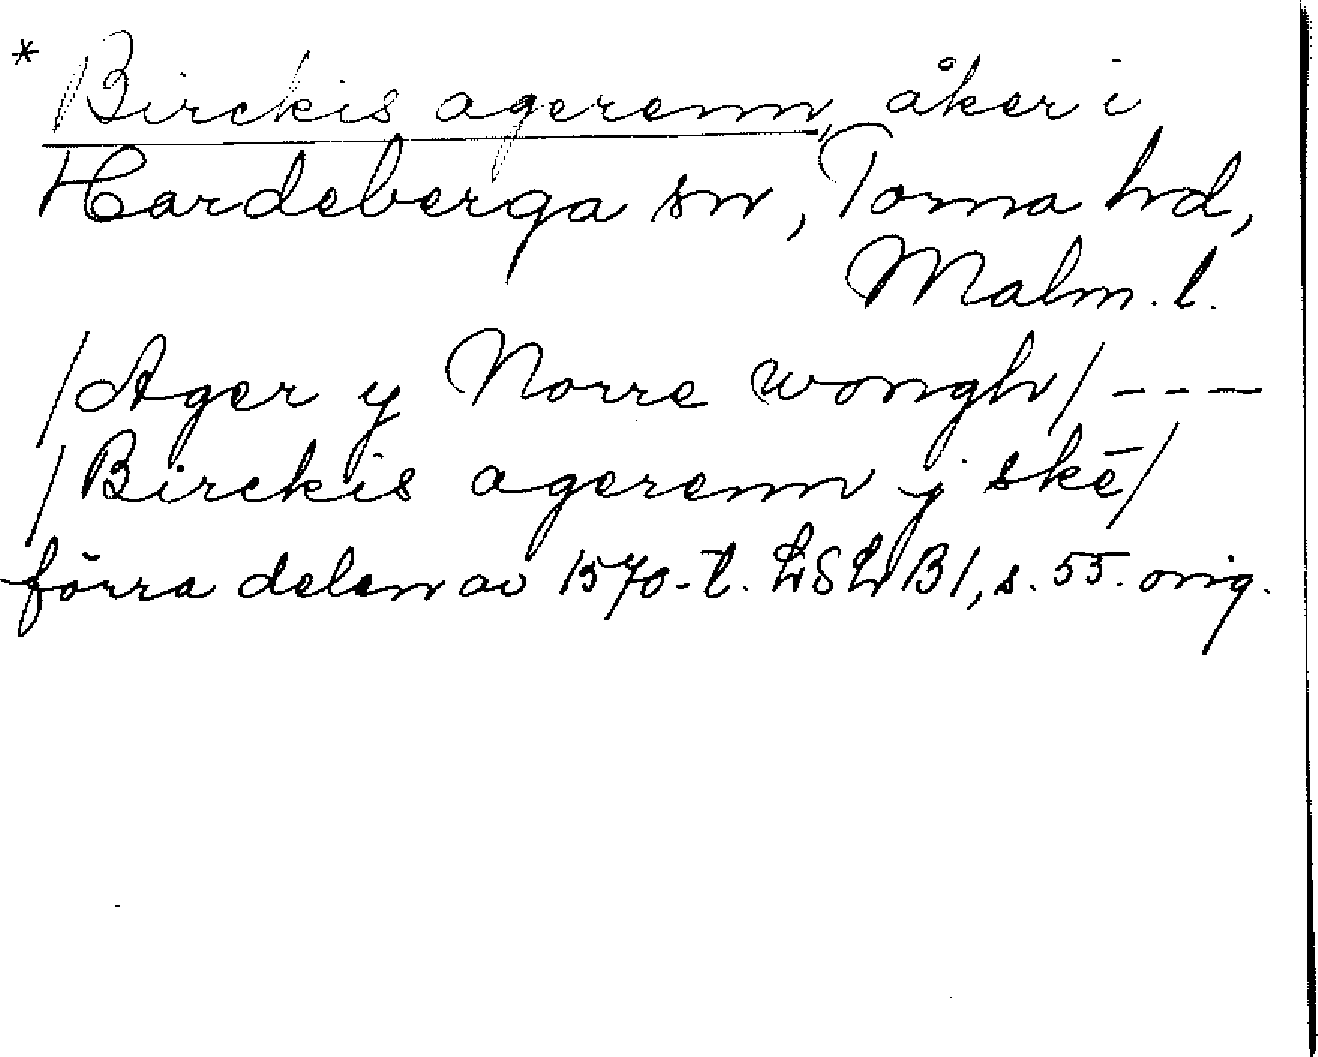 * Birckis agerenn, åker i
Hardeberga sn, Torna hd,
Malm. l.
/Ager y Norre wongh/ ---
/Birckis agerenn y skē/
förra delen av 1570-t. LSLB1, s. 55. orig.